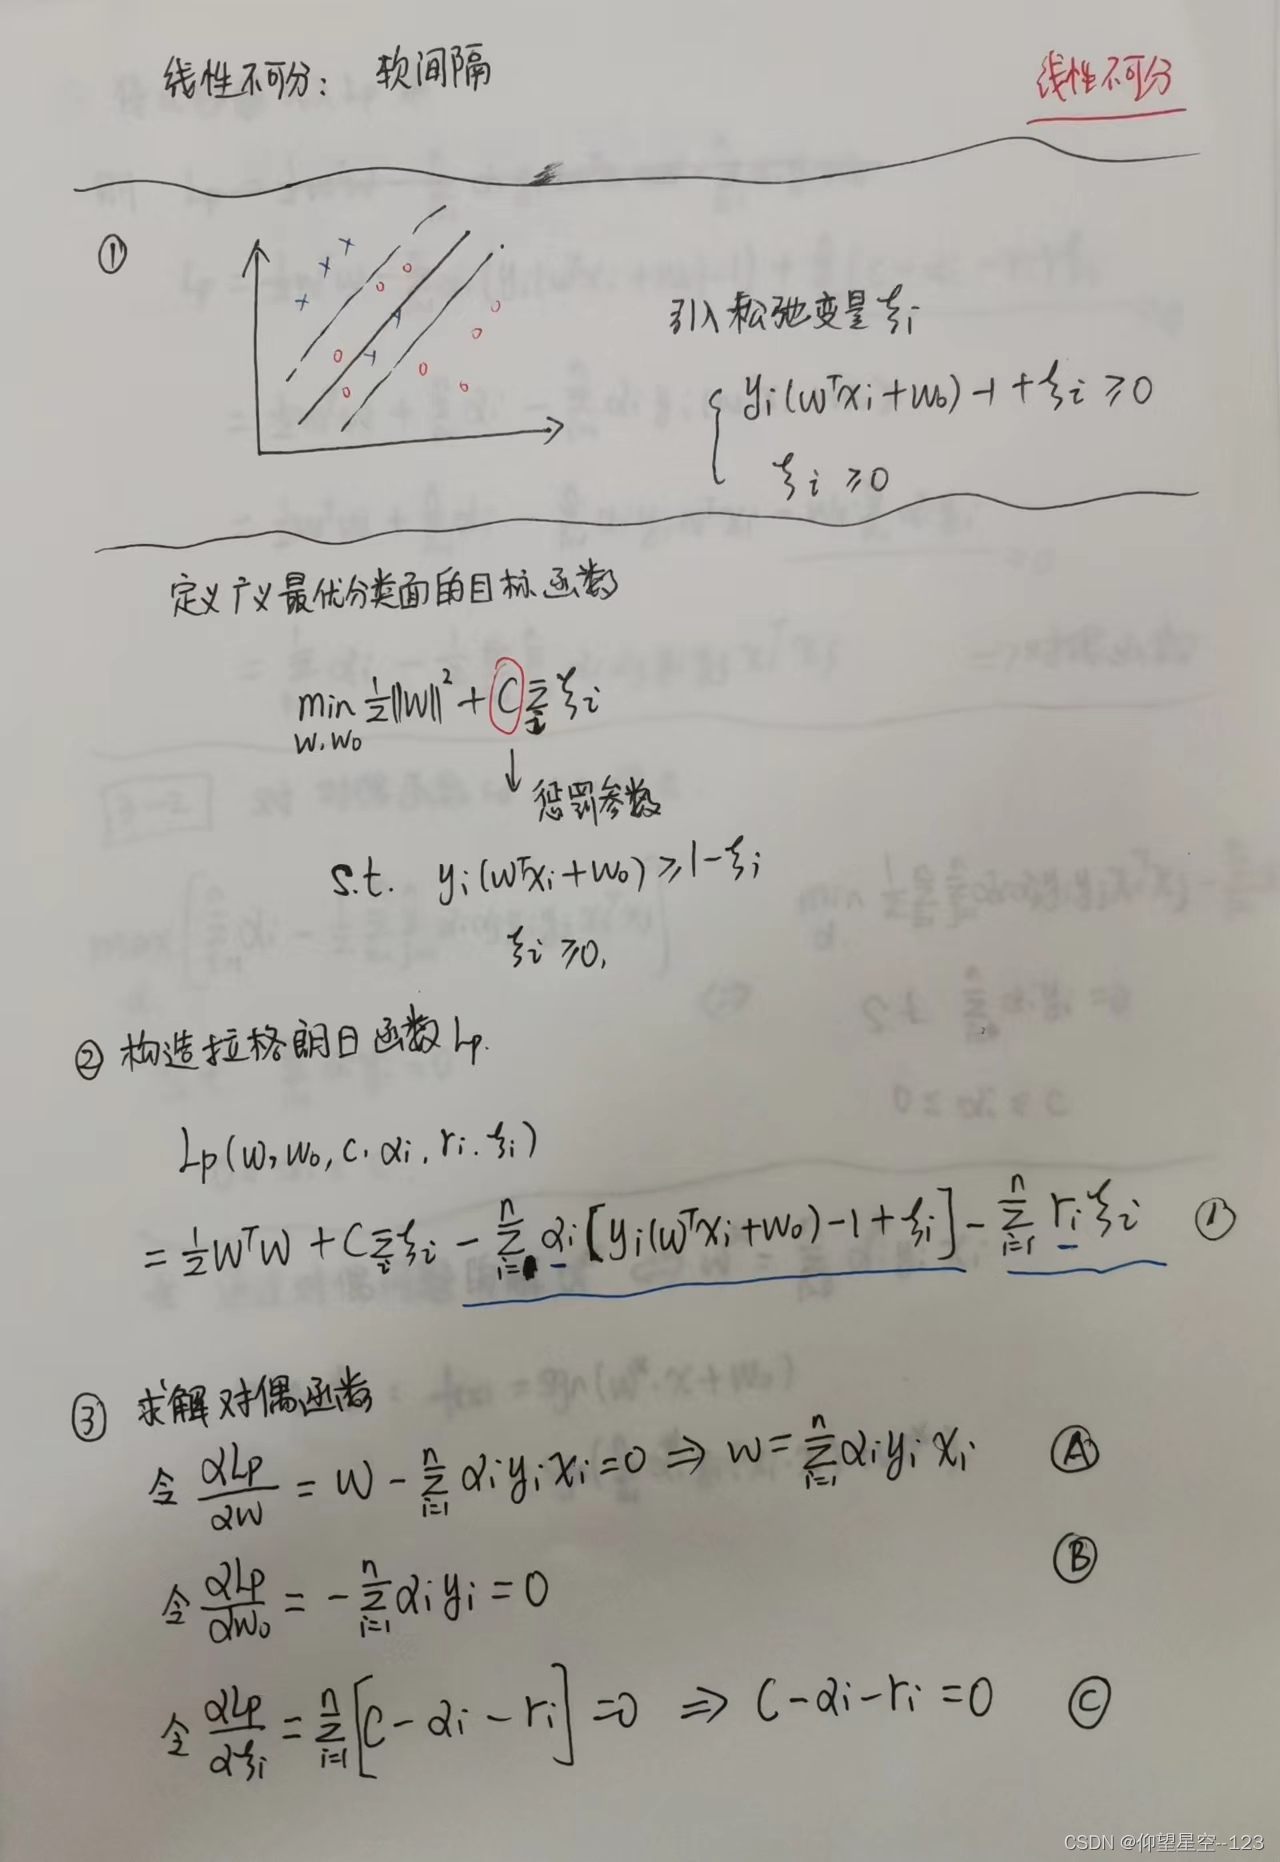 线性不可分: 软间隔
线性不可分
①
引入松弛变量 ξi
yi(wᵀxi+w₀)-1+ξi ≥0
ξi ≥0
定义广义最优分类面的目标函数
min ½||W||² + C Σi ξi
W,W₀
惩罚参数
s.t. yi(wᵀxi+w₀) ≥ 1-ξi
ξi ≥0,
② 构造拉格朗日函数 Lp.
Lp(w, w₀, c, αi, ri, ξi)
= ½WᵀW + C Σi ξi - Σ(i=1,n) αi [yi(wᵀxi+w₀)-1+ξi] - Σ(i=1,n) ri ξi ①
③ 求解对偶函数
令 αLp/αW = W - Σ(i=1,n) αi yi xi = 0 ⇒ w = Σ(i=1,n) αi yi xi Ⓐ
Ⓑ
令 αLp/αw₀ = - Σ(i=1,n) αi yi = 0
令 αLp/αξi = Σ(i=1,n) [C - αi - ri] = 0 ⇒ C - αi - ri = 0 Ⓒ
CSDN @仰望星空--123